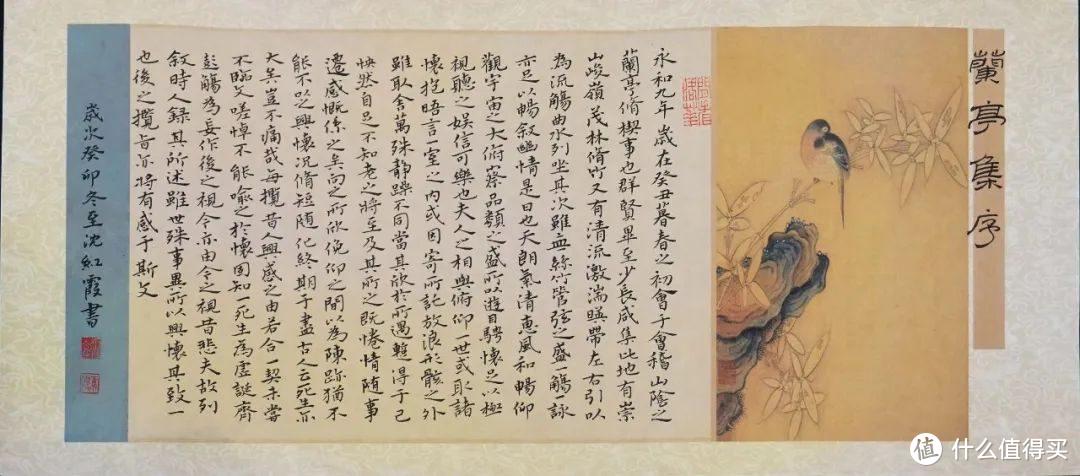 蘭亭集序
永和九年歲在癸丑暮春之初會于會稽山陰之
蘭亭脩禊事也群賢畢至少長咸集此地有崇
山峻嶺茂林脩竹又有清流激湍暎帶左右引以
為流觴曲水列坐其次雖無絲竹管弦之盛一觴一詠
亦足以暢敘幽情是日也天朗氣清惠風和暢仰
觀宇宙之大俯察品類之盛所以遊目騁懷足以極
視聽之娛信可樂也夫人之相與俯仰一世或取諸
懷抱晤言一室之內或因寄所託放浪形骸之外
雖取舍萬殊靜躁不同當其欣於所遇蹔得于己
怏然自足不知老之將至及其所之既惓情隨事
遷感慨係之矣向之所欣俛仰之間以為陳跡猶不
能不以之興懷況脩短隨化終期于盡古人云死生亦
大矣豈不痛哉每攬昔人興感之由若合一契未嘗
不臨文嗟悼不能喻之於懷固知一死生為虛誕齊
彭觴為妄作後之視今亦由今之視昔悲夫故列
敘時人錄其所述雖世殊事異所以興懷其致一
也後之攬者亦將有感于斯文
歲次癸卯冬至沈紅霞書
值 什么值得买